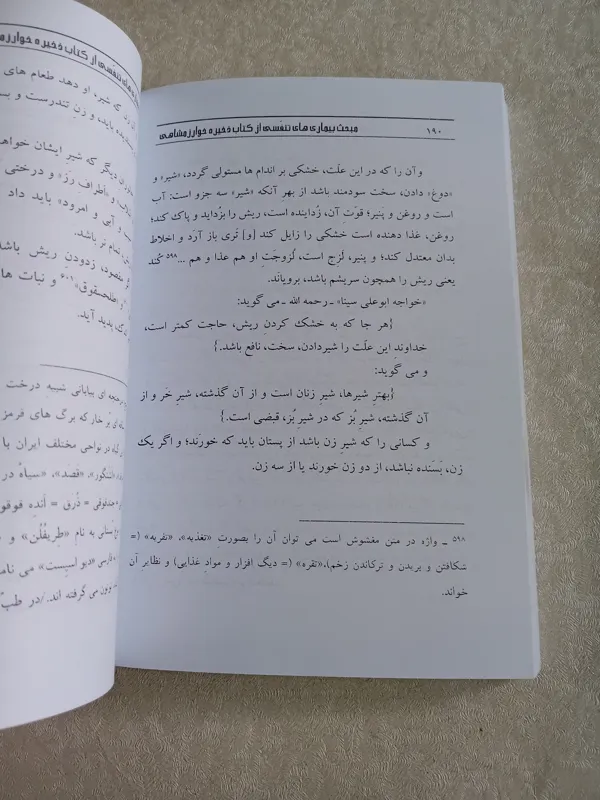 ۱۹۰ مبحث بیماری های تنفّسی از کتاب ذخیره خوارزمشاهی
و آن را که در این علّت، خشکی بر اندام ها مستولی گردد، «شیر» و
«دوغ» دادن، سخت سودمند باشد از بهرِ آنکه «شیر» سه جزو است: آب
است و روغن و پنیر؛ قوّتِ آن، زُداینده است، ریش را بزُداید و پاک کند؛
روغن، غذا دهنده است خشکی را زایل کند [و] تَری باز آرَد و اخلاط
بدان معتدل کند؛ و پنیر، لَزِج است، لُزوجَتِ او هم غذا و هم ...۵۹۸ کُند
یعنی ریش را همچون سریشم باشد، برویاند.
«خواجه ابوعلی سینا» ـ رحمه الله ـ می گوید:
{هر جا که به خشک کردنِ ریش، حاجت کمتر است،
خداوندِ این علّت را شیردادن، سخت، نافع باشد.}
و می گوید:
{بهترِ شیرها، شیرِ زنان است و از آن گذشته، شیرِ خَر و از
آن گذشته، شیرِ بُز که در شیرِ بُز، قبضی است.}
و کسانی را که شیرِ زن باشد از پستان باید که خورَند؛ و اگر یك
زن، بَسَنده نباشد، از دو زن خورند یا از سه زن.
۵۹۸ ـ واژه در متن مغشوش است می توان آن را بصورتِ «تغذیه»، «نفریه» (=
شکافتن و بریدن و ترکاندن زخم)،«تقره» (= دیگ افزار و موادِ غذایی) و نظایر آن
خواند.
از کتاب ذخیره خوارزم
که شیرِ او دهد طعام های
باید، و زن تندرست و
دیگر که شیر ایشان خواهد
و «اطراف رَز» و درختی
و آبی و امرود» باید داد
تمام تر باشد.
مقصود، زدودن ریش باشد
و نبات ها
پدید آید.
ای بیابانی شبیهِ درخت
خار که برگ های قرمز
در نواحی مختلف ایران با
«قصد»، «سیاهْ
= ذُرق =
به نام «طِریفُلُن» و
فارسی «دیو اسپست» می
می گرفته اند./در طب